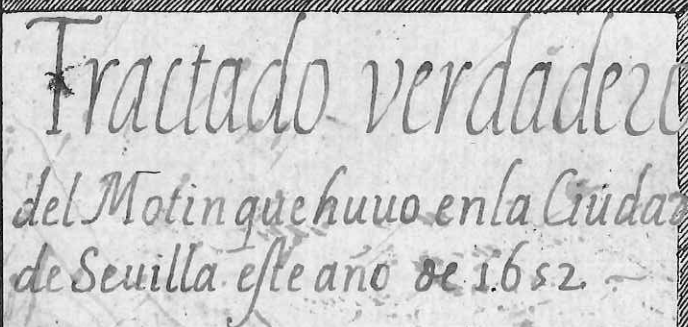 Tractado verdadero
del Motin que huuo en la Ciudad
de Seuilla este año de 1.652.